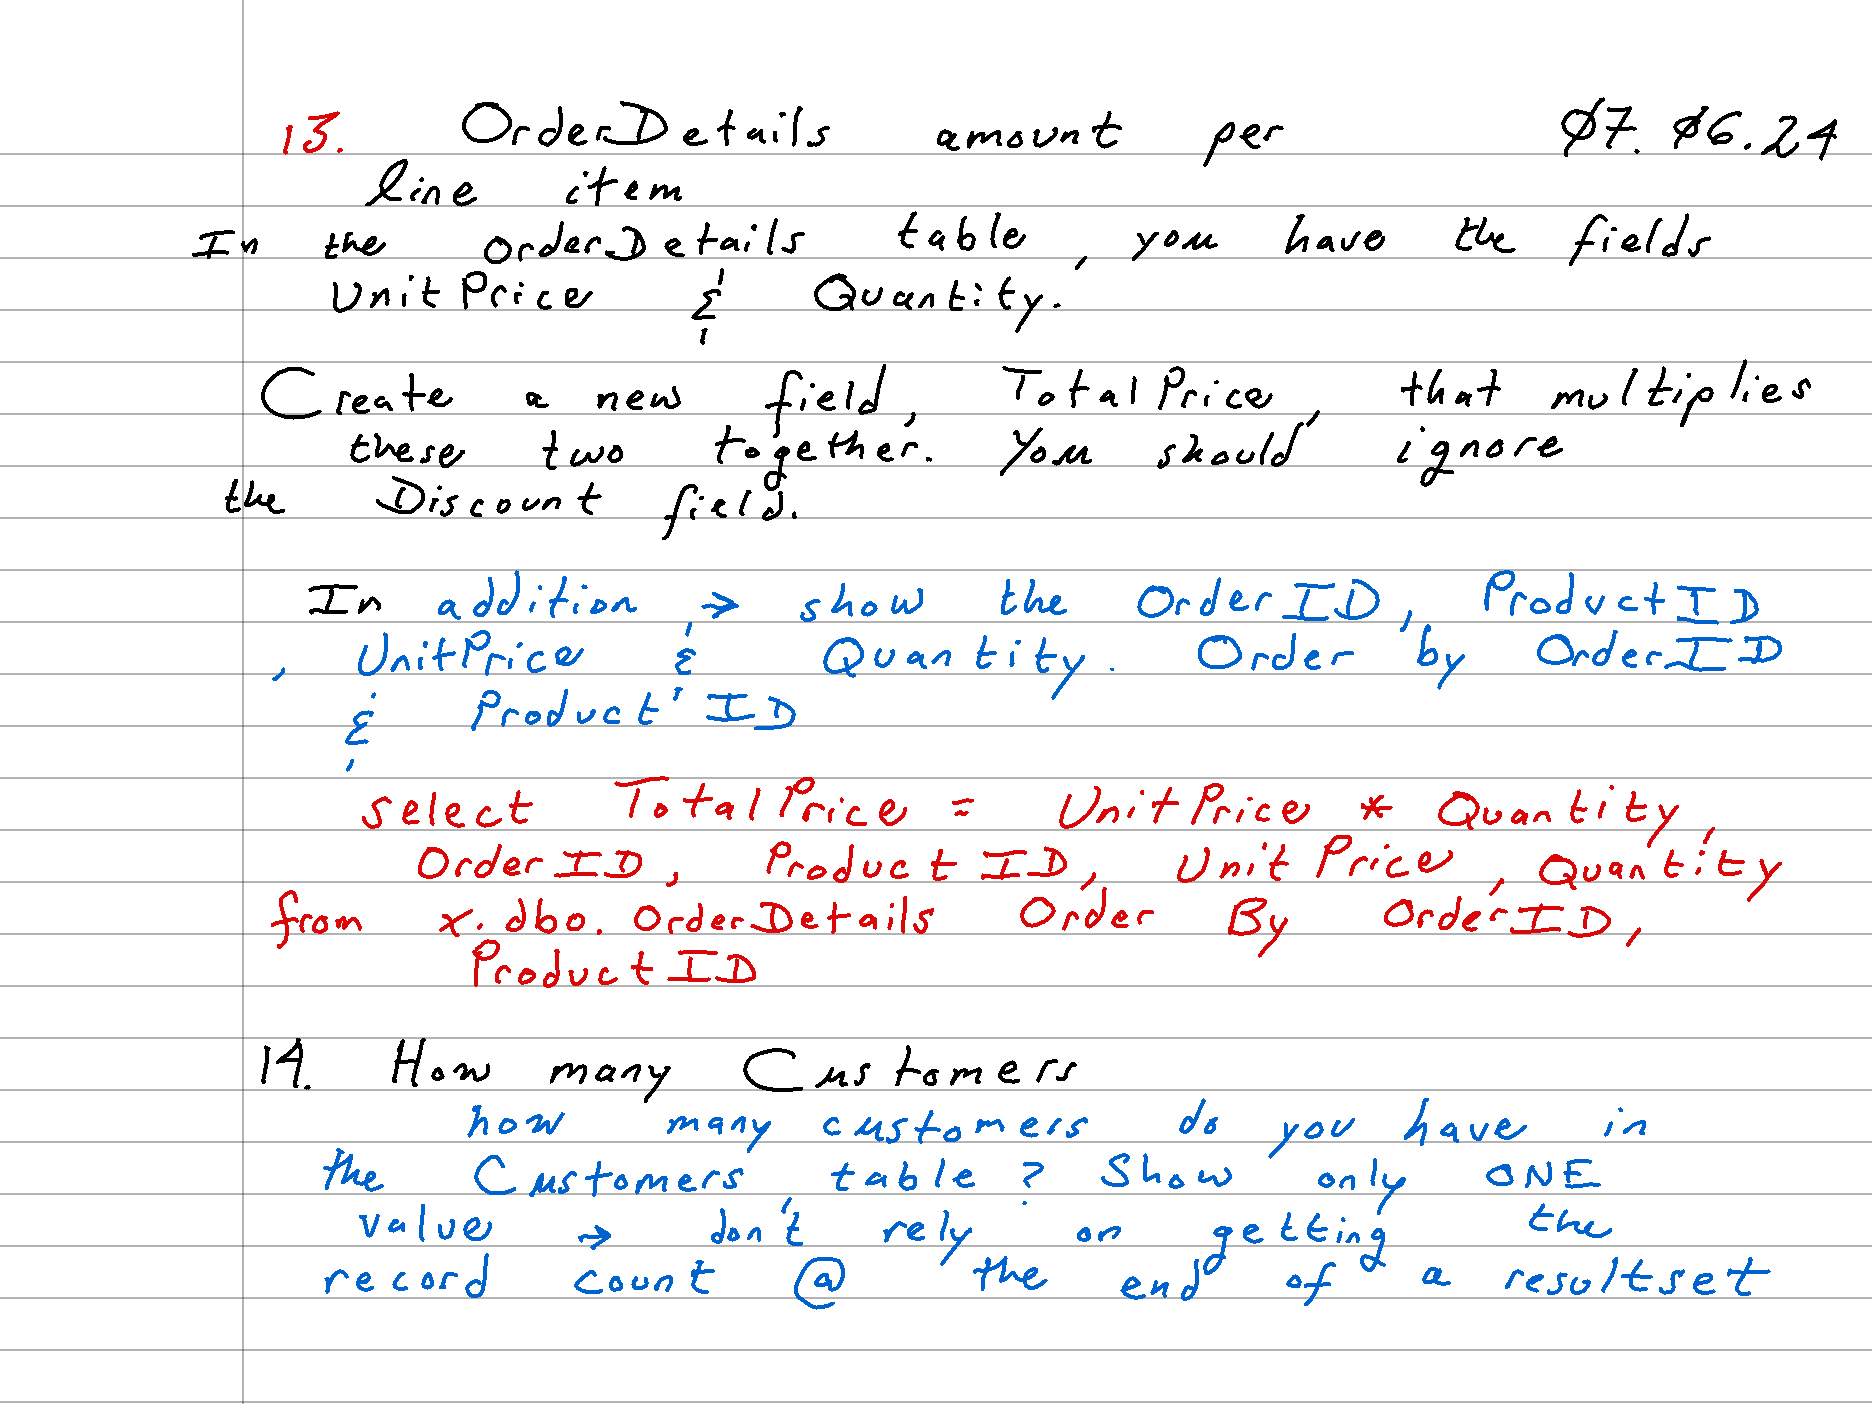 13. OrderDetails amount per Ø7.Ø6.24
line item
In the OrderDetails table, you have the fields
UnitPrice & Quantity.
Create a new field, TotalPrice, that multiplies
these two together. You should ignore
the Discount field.
In addition → show the OrderID, ProductID
, UnitPrice & Quantity. Order by OrderID
& ProductID
select TotalPrice = UnitPrice * Quantity,
OrderID, ProductID, UnitPrice, Quantity
from x.dbo.OrderDetails Order By OrderID,
ProductID
14. How many Customers
how many customers do you have in
the Customers table? Show only ONE
value → don't rely on getting the
record count @ the end of a resultset